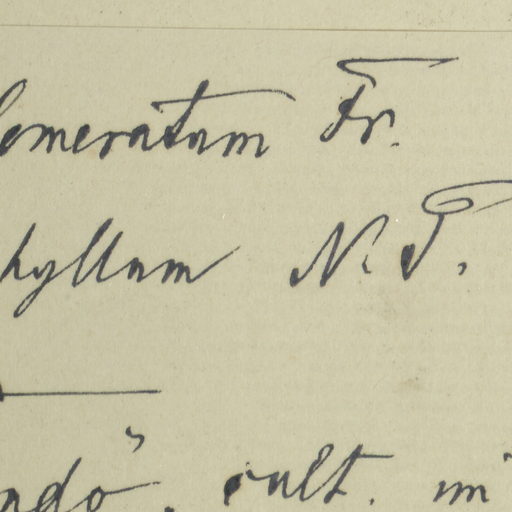 lomeratum Fr.
hyllum N. P.
ndö, cult. in